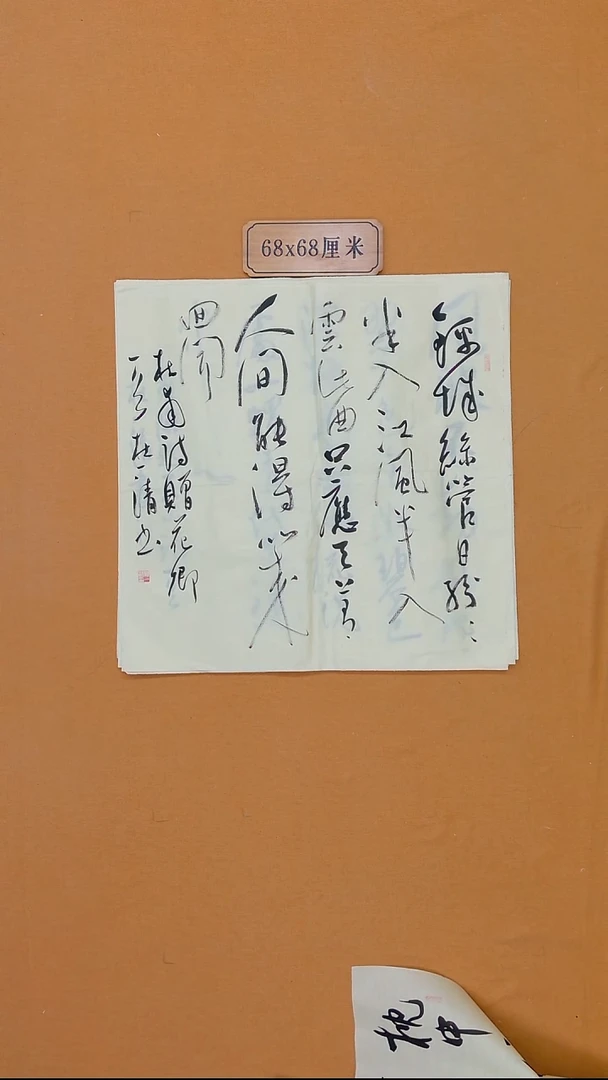 68x68厘米
錦城絲管日紛〻
半入江風半入
雲此曲只應天上有
人间能得幾
回闻
杜甫诗贈花卿
清书